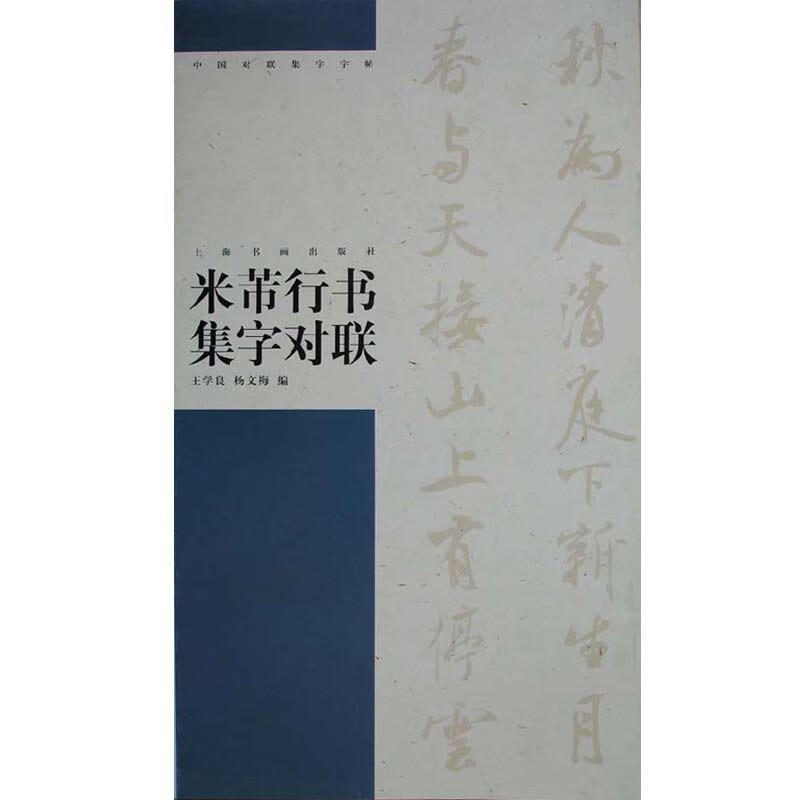 中国对联集字字帖
上海书画出版社
米芾行书
集字对联
王学良 杨文梅 编
秋为人清庭下新生月
春与天接山上有停雲